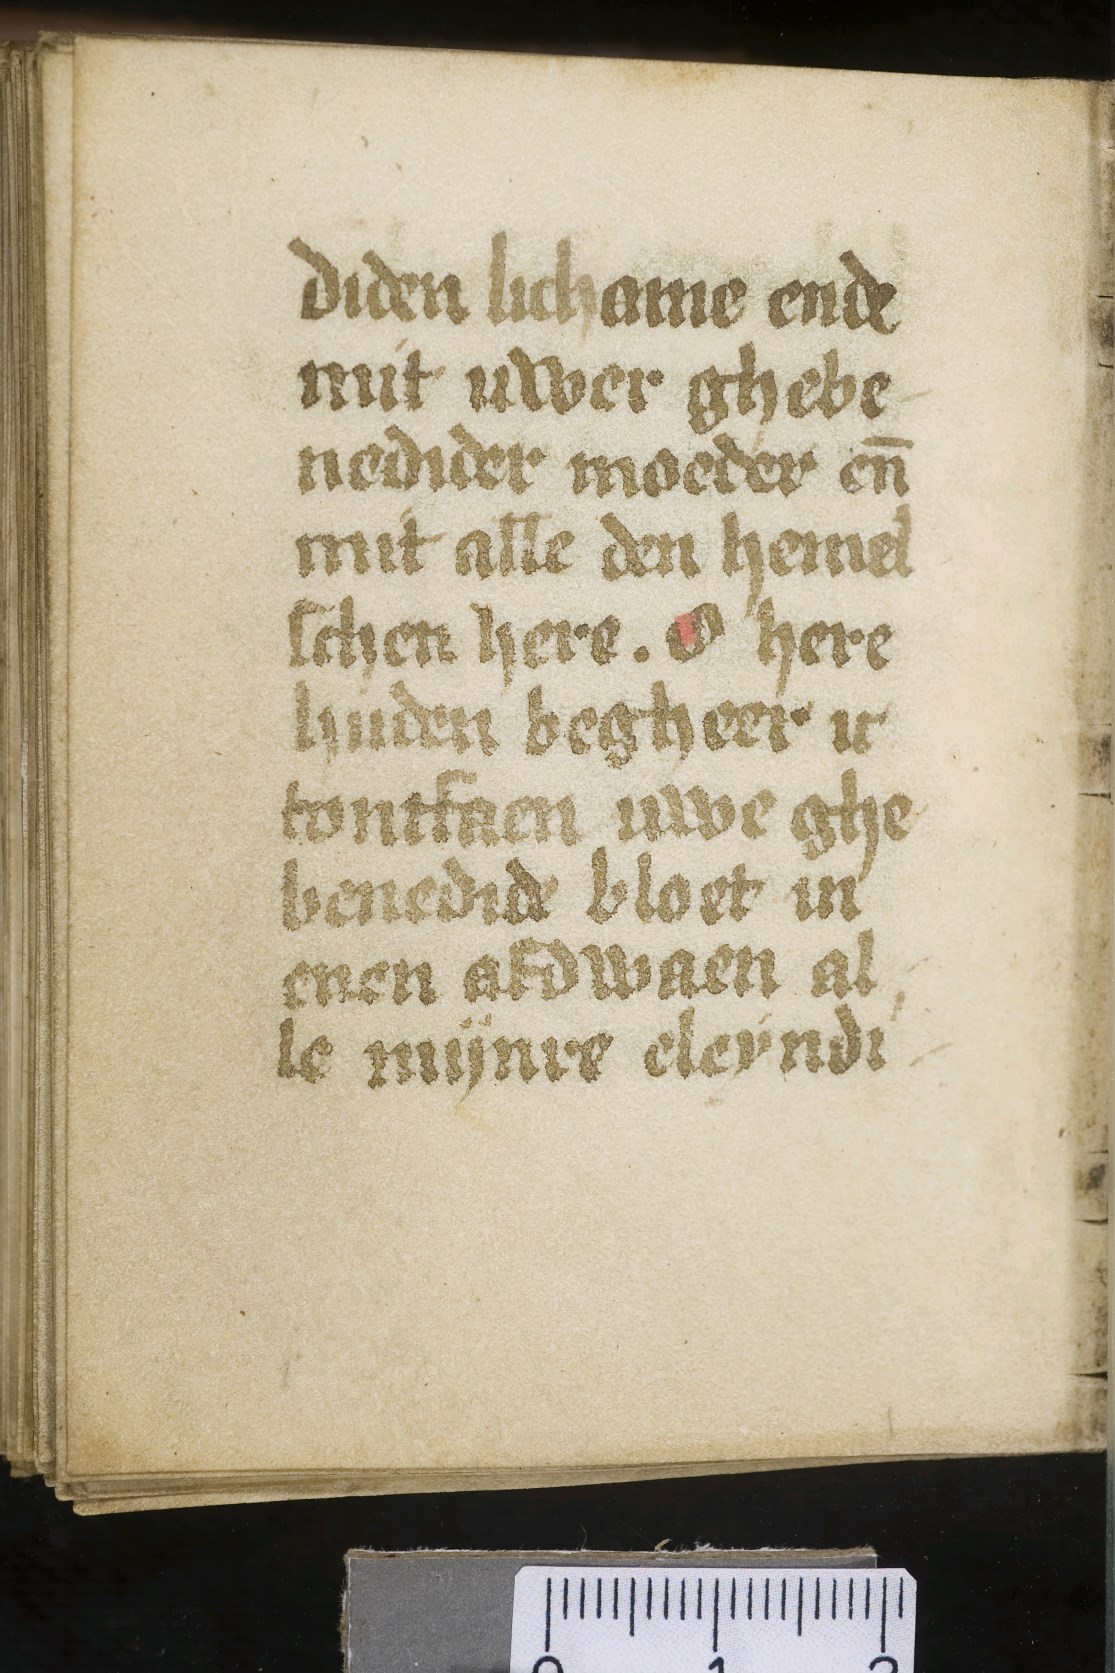 diden lichame ende
mit uwer ghebe
nedider moeder en̄
mit alle den hemel
schen here. O here
huden begheer ic
tontfaen uwe ghe
benedide bloet in
enen afdwaen al
le mijnre eleyndi
0 1 2